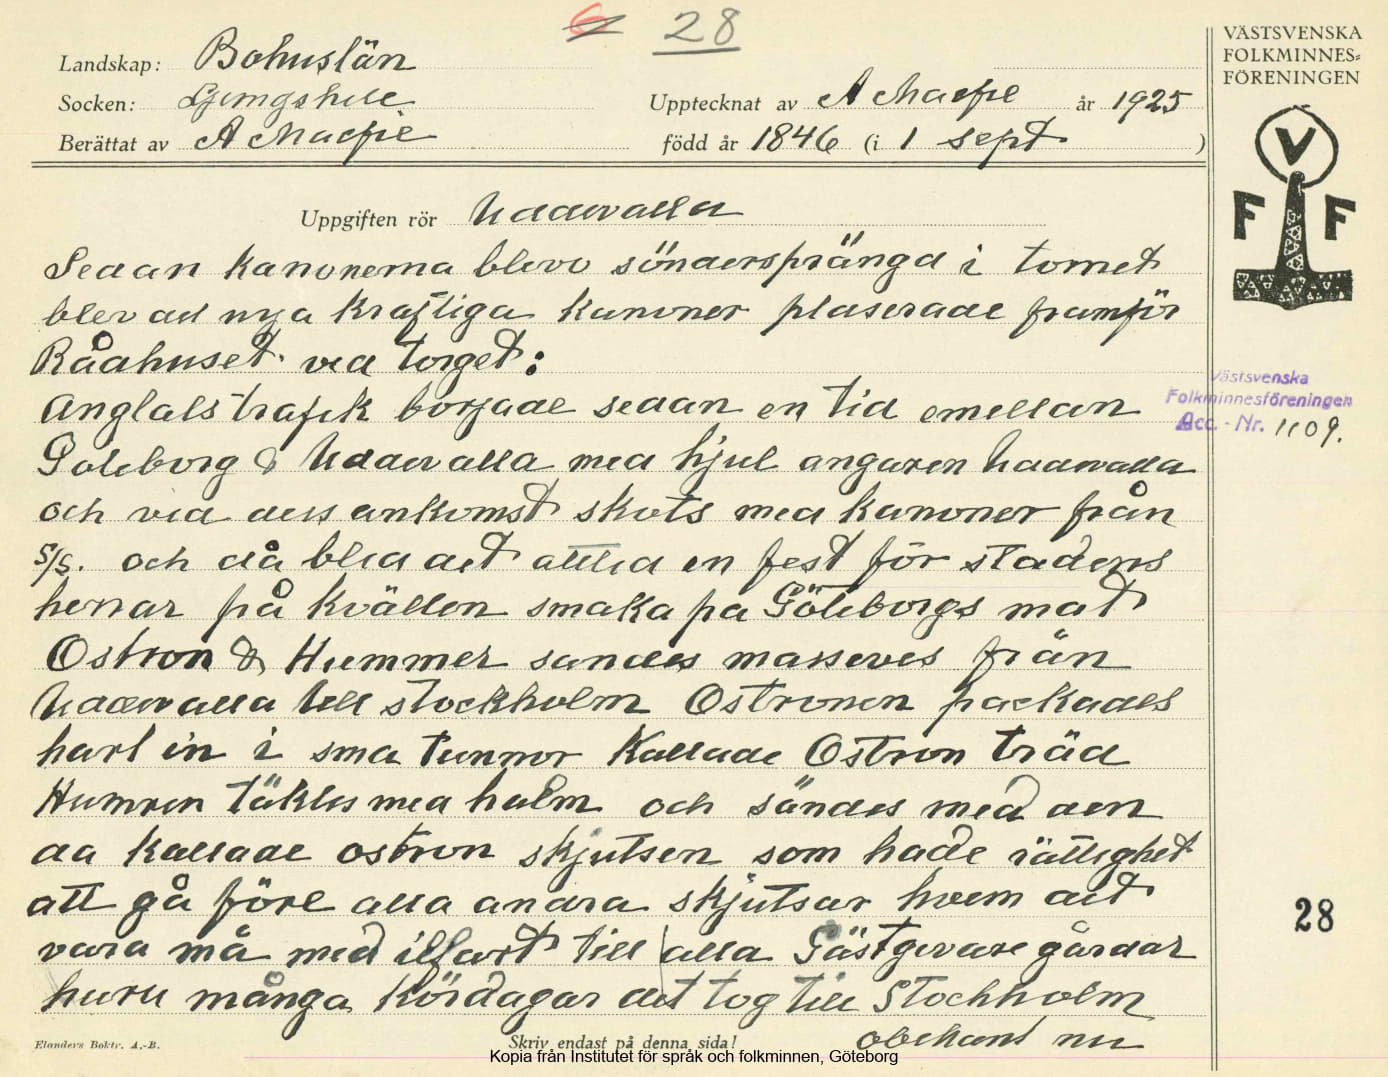 6 28
VÄSTSVENSKA
FOLKMINNES=
FÖRENINGEN
Landskap: Bohuslän
Socken: Ljungskile
Upptecknat av A Macfie år 1925
Berättat av A Macfie född år 1846 (i 1 sept )
V
F F
Uppgiften rör Uddevalla
Sedan kanonerna blevo söndersprängd i tornet
blev det nya kraftliga kanoner plaserade framför
Rådhuset vid torget:
Anglalstrafik började sedan en tid emellan
Västsvenska
Folkminnesföreningen
Acc. - Nr. 1109.
Goteborg & Uddevalla med hjul angaren Uddevalla
och vid dess ankomst skots med kanoner från
S/S. och då blid det alltid en fest för stadens
herrar på kvällen smaka pa Göteborgs mat
Ostron & Hummer sandes massevis från
Uddevalla till stockholm Ostronen packades
hart in i sma tunnor Kallade Ostron träd
Humren täktes med halm och sändes med den
da kallade ostron skjutsen som hade rättighet
att gå före alla andra skjutsar hvem det
28
vara må med ilfart till alla Gästgivare gårdar
huru många Kördagar det tog till Stockholm
obekant nu
Elanders Boktr. A.-B.
Skriv endast på denna sida!
Kopia från Institutet för språk och folkminnen, Göteborg